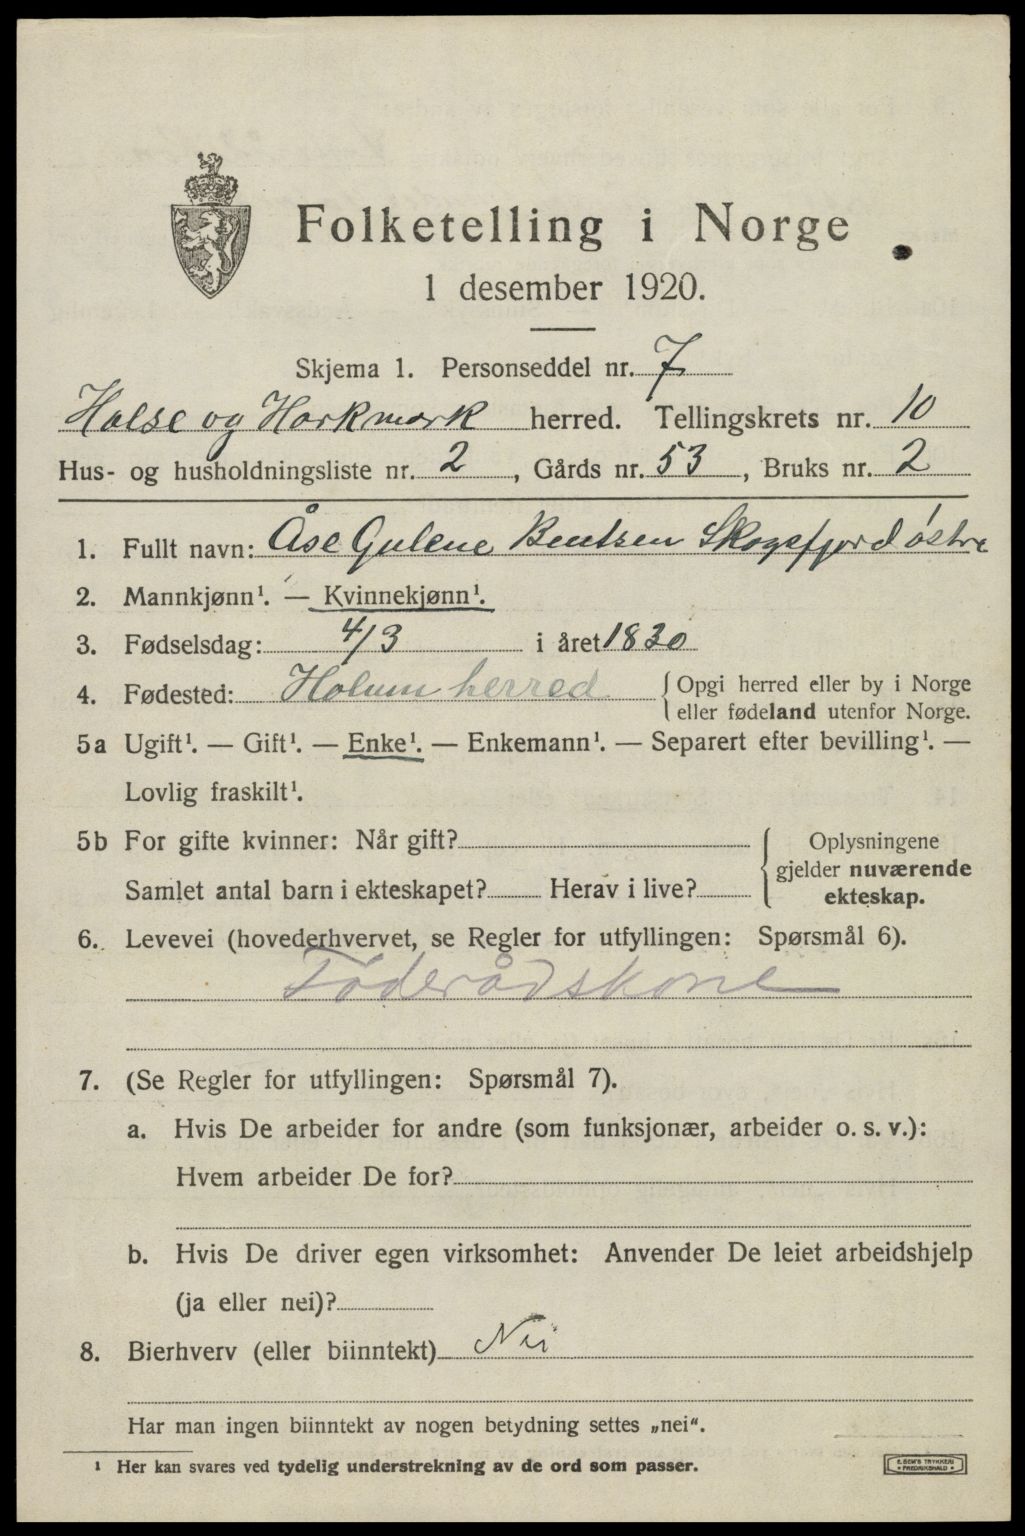 Folketelling i Norge
1 desember 1920.
Skjema 1. Personseddel nr. 7
Halse og Harkmark herred. Tellingskrets nr. 10
Hus- og husholdningsliste nr. 2, Gårds nr. 53, Bruks nr. 2
1. Fullt navn: Åse Gulene Bentsen Skogsfjord østre
2. Mannkjønn¹. — Kvinnekjønn¹.
3. Fødselsdag: 4/3 i året 1830
4. Fødested: Holum herred { Opgi herred eller by i Norge
eller fødeland utenfor Norge.
5a Ugift¹. — Gift¹. — Enke¹. — Enkemann¹. — Separert efter bevilling¹. —
Lovlig fraskilt¹.
5b For gifte kvinner: Når gift?
Samlet antal barn i ekteskapet? Herav i live?
{ Oplysningene
gjelder nuværende
ekteskap.
6. Levevei (hovederhvervet, se Regler for utfyllingen: Spørsmål 6).
Føderådskone
7. (Se Regler for utfyllingen: Spørsmål 7).
a. Hvis De arbeider for andre (som funksjonær, arbeider o. s. v.):
Hvem arbeider De for?
b. Hvis De driver egen virksomhet: Anvender De leiet arbeidshjelp
(ja eller nei)?
8. Bierhverv (eller biinntekt) Nei
Har man ingen biinntekt av nogen betydning settes „nei“.
¹ Her kan svares ved tydelig understrekning av de ord som passer.
E. SEM'S TRYKKERI
• FREDRIKSHALD •